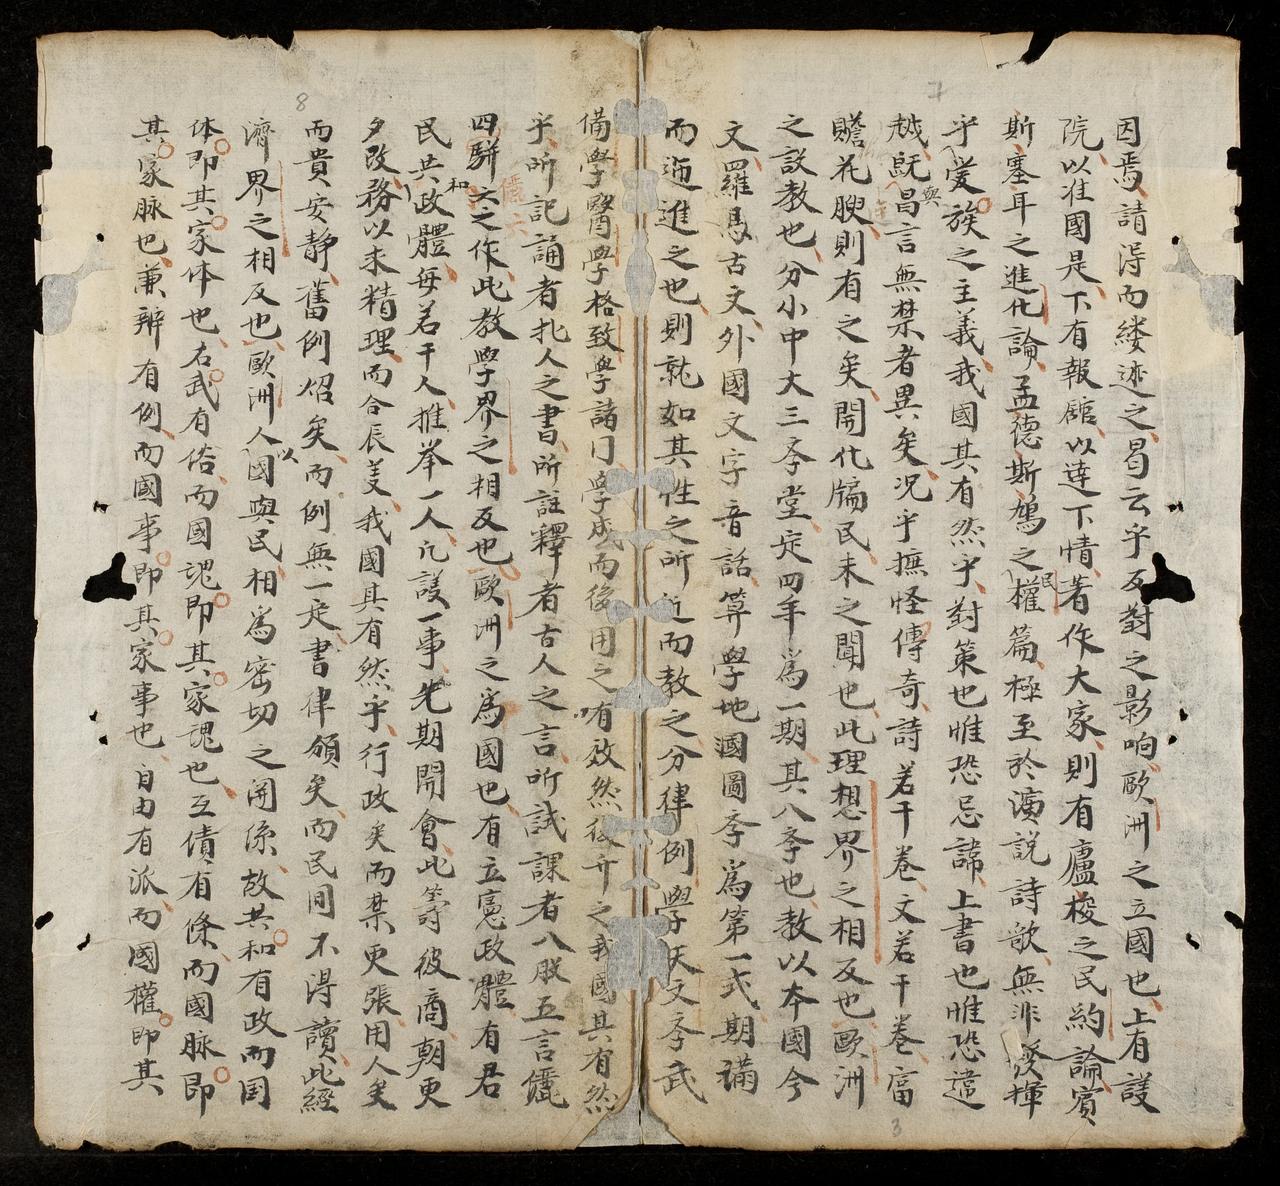 因焉請得而縷述之曷云乎反對之影响歐洲之立國也上有議
院以准國是下有報館以達下情著作大家則有盧梭之民約論賓
斯塞耳之進化論孟德斯鳩之民權篇極至於演說詩歌無非發揮
乎愛族之主義我國其有然乎對策也惟恐忌諱上書也惟恐違
越與既昌言無禁者異矣况乎摭怪傳奇詩若干卷文若干卷富
贍花腴則有之矣開化牖民未之聞也此理想界之相反也歐洲
之設教也分小中大三斈堂定四年為一期其入斈也教以本國今
文羅馬古文外國文字音話算學地輿圖斈為第一弌期滿
而迤進之也則就如其性之所近而教之分律例學天文斈武
備學醫學格致學諸門學成而後用之有效然後升之我國其有然
乎所記誦者孔人之書所註釋者古人之言所試課者八股五言儷
四駢六之作此教學界之相反也歐洲之為國也有立憲政體有君
民共和政體每若干人推举一人凡議一事先期開會此籌彼商朝更
夕改務以求精理而合辰羙我國其有然乎行政矣而禁更張用人矣
而貴安靜舊例炤矣而例無一定書律頒矣而民间不得讀此經
濟界之相反也歐洲人以國與民相為密切之関係故共和有政而国
体即其家体也右武有俗而國魂即其家魂也互債有條而國脉即
其家脉也兼辦有例而國事即其家事也自由有派而國權即其